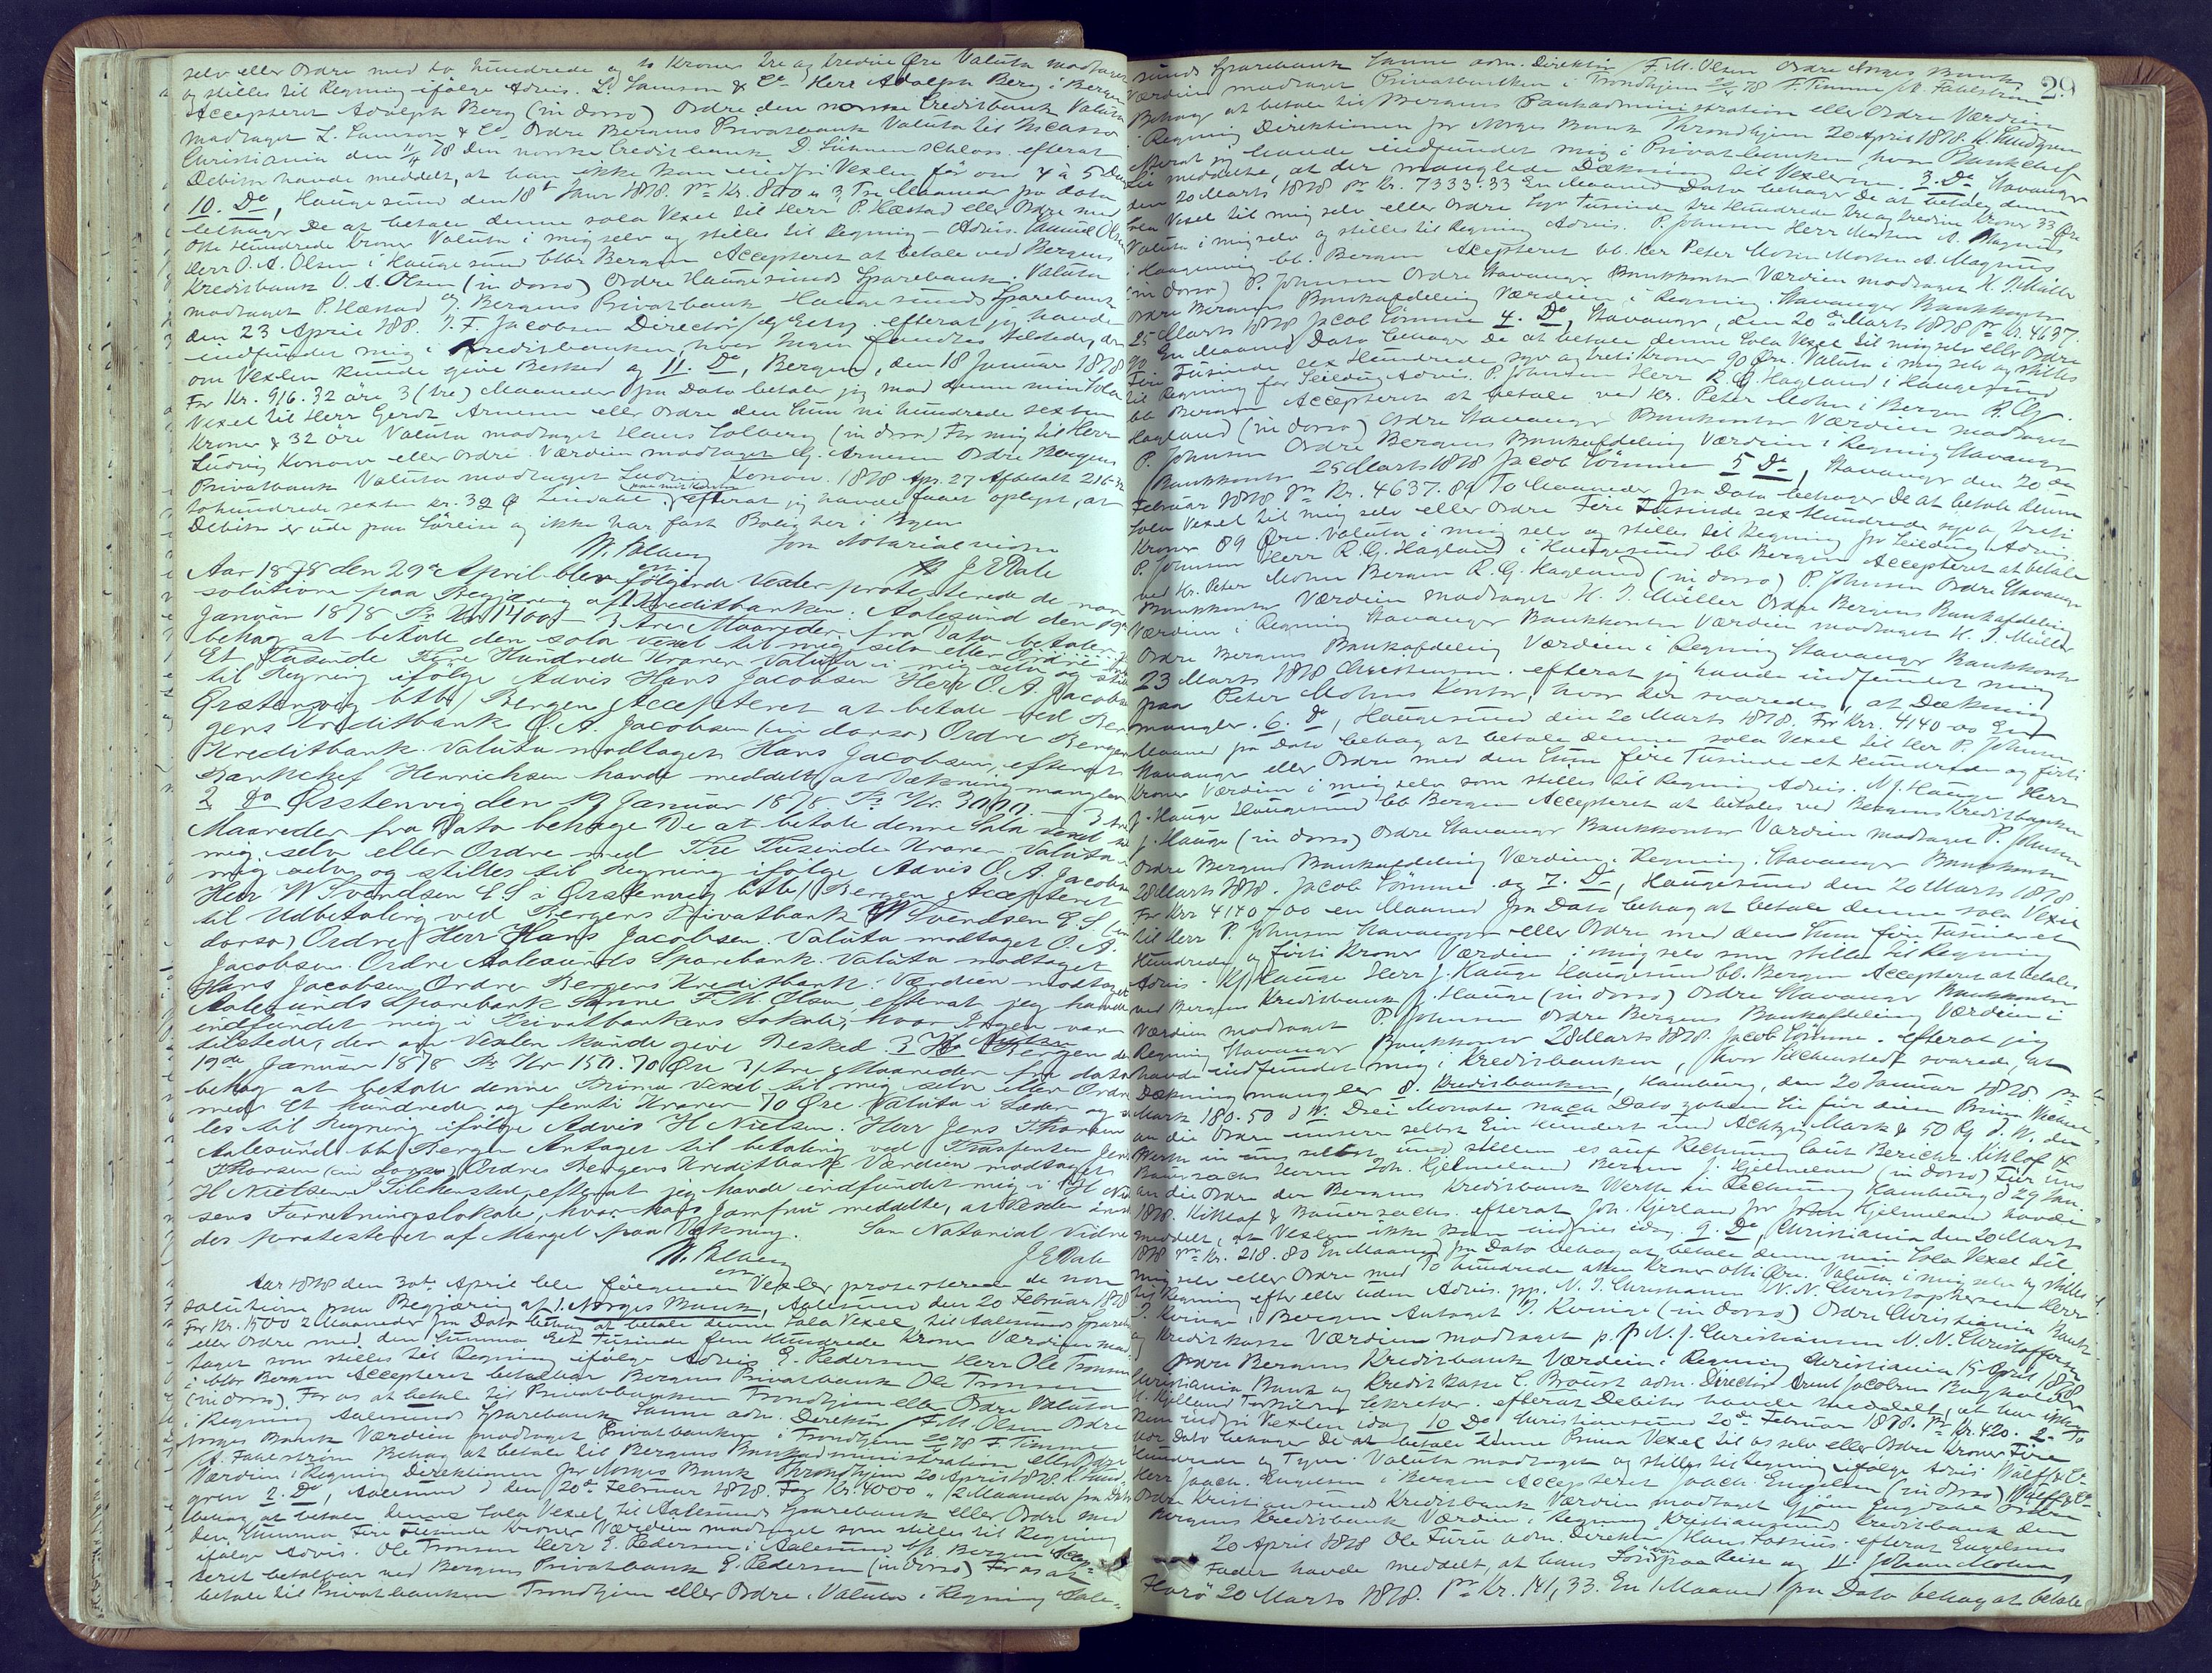 selv eller Ordre med to hundrede og to Kroner tre og tredive Øre Valuta modtaget
og stilles til Regning ifølge Advis. L. Samson & Co Herr Adolph Berg i Bergen
Accepteret Adolph Berg (in dorso) Ordre den norske Creditbank Valuta
modtaget L. Samson & Co Ordre Bergens Privatbank Valuta til Incasso
Christiania den 11/4 78 den norske Creditbank D. Lühnenschloss. efterat
Debitor havde meddelt, at han ikke kan indfri Vexlen før om 4 à 5 Dage
10. Do, Haugesund den 18t Janr 1878. pr Kr. 800 " 3 Tre Maaneder fra dato
behager De at betale denne sola Vexel til Herr P. Hæstad eller Ordre med
otte Hundrede Kroner Valuta i mig selv og stilles til Regning – Advis. Samuel Olsen
Herr O. A. Olsen i Haugesund btbr Bergen Accepteret at betale ved Bergens
Kreditbank O. A. Olsen (in dorso) Ordre Haugesunds Sparebank. Valuta
modtaget P. Hæstad og Bergens Privatbank Haugesunds Sparebank
den 23 April 1878. J. F. Jacobsen Director / efterat jeg havde
indfundet mig i Kreditbanken, hvor Ingen fandtes tilstede, der
om Vexlen kunde give Besked og 11. Do, Bergen, den 18 Januar 1878
For Kr. 916.32 öre 3 (tre) Maaneder fra Dato betaler jeg mod denne min Sola
Vexel til Herr Gerdt Arnesen eller Ordre den Sum ni hundrede sexten
Kroner & 32 öre Valuta modtaget Hans Solberg (in dorso) For mig til Herr
Ludvig Konow eller Ordre. Værdien modtaget G. Arnesen Ordre Bergens
Privatbank Valuta modtaget Ludvig Konow. 1878 Apr. 27 Afbetalt 216-32
tohundrede sexten kr. 32 Ø efterat jeg havde faaet oplyst, at
Debitor er ude paa Söreise og ikke har fast Bolig her i Byen
Som Notarialvidne
J E Dale
Aar 1878 den 29de April blev følgende Vexler protesterede de non
solutione paa Begjæring af 1. Kreditbanken: Aalesund den 19de
Januar 1878 Pr Kr 1400 – 3 tre Maaneder fra Dato betaler
behag at betale den sola Vexel til mig selv eller Ordre med
Et Tusinde Fire Hundrede Kroner Valuta i mig selv og stilles
til Regning ifølge Advis Hans Jacobsen Herr O. A. Jacobsen
Ørstenvig btbr Bergen Accepteret at betale ved Ber
gens Kreditbank O. A. Jacobsen (in dorso) Ordre Bergens
Kreditbank. Valuta modtaget Hans Jacobsen, efterat
Bankchef Henrichsen havde meddelt, at Dækning mangler
2 Do Ørstenvig den 19 Januar 1878. Pr Kr. 3000. – 3 tre
Maaneder fra Dato behage De at betale denne Sola Vexel til
mig selv eller Ordre med Tre Tusinde Kroner Valuta i
mig selv og stilles til Regning ifølge Advis O. A. Jacobsen
Herr W Svendsen E S i Ørstenvig btbr Bergen Accepteret
til Udbetaling ved Bergens Privatbank W Svendsen E S (in
dorso) Ordre Herr Hans Jacobsen. Valuta modtaget O. A.
Jacobsen. Ordre Aalesunds Sparebank. Valuta modtaget
Hans Jacobsen Ordre Bergens Kreditbank. Værdien modtaget
Aalesunds Sparebank Sanne F. M. Olsen, efterat jeg havde
indfundet mig i Privatbankens Lokale, hvor Ingen var
tilstede, der om Vexlen kunde give Besked. 3 Bergen den
19de Januar 1878 Pr Kr 150.70 Øre 3/tre Maaneder fra dato
behag at betale denne Prima Vexel til mig selv eller Ordre
med Et hundrede og femti Kroner 70 Øre. Valuta i Læder og stil
les til Regning ifølge Advis H Nielsen. Herr Jens Thorsen
Aalesund bb. Bergen Antaget til betaling ved Trasenten Jens
Thorsen (in dorso) Ordre Bergens Kreditbank Værdien modtaget
H Nielsen Silchenstedt, efterat jeg havde indfundet mig i H Niel
sens Forretningslokale, hvor hans Jomfru meddelte, at Vexlen
des protesteret af Mangel paa Dækning. Som Notarial Vidne
J E Dale
Aar 1878 den 30te April blev følgende Vexler protesterede de non
solutione paa Begjæring af 1. Norges Bank, Aalesund den 20 Februar 1878
For Kr. 1500 2 Maaneder fra Dato behag at betale denne Sola Vexel til Aalesunds Spareb.
eller Ordre med den Summa Eet Tusinde fem Hundrede Kroner Værdien mod
taget som stilles til Regning ifølge Advis E. Pedersen Herr Ole Tronsen
i bbr Bergen Accepteret betalbar Bergens Privatbank Ole Tronsen
(in dorso). For os at betale til Privatbanken Trondhjem eller Ordre Valuta
i Regning Aalesunds Sparebank Sanne adm. Direktør / F. M. Olsen Ordre
Norges Bank Værdien modtaget Privatbanken i Trondhjem 20/4 78 F. Timme
A. Fahlstrøm Behag at betale til Bergens Bankadministration eller Ordre
Værdien i Regning Direktionen for Norges Bank Throndhjem 20 April 1878. K. Lund
gren 2. Do, Aalesund den 20de Februar 1878. For Kr. 4000 " 2 Maaneder fra Dato
behag at betale denne Sola Vexel til Aalesunds Sparebank eller Ordre med
den Summa Fire Tusinde Kroner Værdien modtaget som stilles til Regning
ifølge Advis. Ole Tronsen Herr E. Pedersen i Aalesund btr. Bergen Accep=
teret betalbar ved Bergens Privatbank E. Pedersen (in dorso) For os at
betale til Privatbanken Trondhjem eller Ordre. Valuta i Regning Aale=
29
sunds Sparebank Sanne adm. Direktør / F. M. Olsen Ordre Norges Bank
Værdien modtaget Privatbanken i Trondhjem 20/4 78 F. Timme A. Fahlstrøm
Behag at betale til Bergens Bankadministration eller Ordre Værdien
i Regning Direktionen for Norges Bank Throndhjem 20 April 1878. K. Lundgren
efterat jeg havde indfundet mig i Privatbanken, hvor Bankchef
Lie meddelte, at der manglede Dækning til Vexlerne. 3. Do, Stavanger
den 20 Marts 1878 pr Kr. 7333.33 En Maaned Dato behager De at betale denne
sola Vexel til mig selv eller Ordre Syv Tusinde tre Hundrede tre og tredive Kroner 33 Øre
Valuta i mig selv og stilles til Regning Advis. P. Johnsen Herr Morten A. Magnus
i Haugesund bb. Bergen Accepteret bb. Hr Peter Mohn Morten A. Magnus
(in dorso) P. Johnsen Ordre Stavanger Bankkontor Værdien modtaget H. J. Müller
Ordre Bergens Bankafdeling Værdien i Regning. Stavanger Bankkontor
25 Marts 1878 Jacob Sömme 4. Do, Stavanger, den 20de Marts 1878 pr Kr. 4637.
90 En Maaned Dato behager De at betale denne Sola Vexel til mig selv eller Ordre
Fire Tusinde sex Hundrede syv og treti Kroner 90 Øre. Valuta i mig selv og stilles
til Regning for Seildug Advis. P. Johnsen Herr R. G. Hagland i Haugesund
bb Bergen Accepteret at betale ved Hr. Peter Mohn i Bergen R. G.
Hagland (in dorso) Ordre Stavanger Bankkontor Værdien modtaget
P. Johnsen Ordre Bergens Bankafdeling Værdien i Regning Stavanger
Bankkontor 25 Marts 1878 Jacob Sömme 5 Do, Stavanger den 20de
Februar 1878 pr Kr. 4637.89 To Maaneder fra Dato behager De at betale denne
Sola Vexel til mig selv eller Ordre Fire Tusinde sex Hundrede syv og treti
Kroner 89 Øre. Valuta i mig selv og stilles til Regning for Seildug Advis
P. Johnsen Herr R. G. Hagland i Haugesund bb Bergen Accepteret at betale
ved Hr. Peter Mohn Bergen R. G. Hagland (in dorso) P. Johnsen Ordre Stavanger
Bankkontor Værdien modtaget H. J. Müller Ordre Bergens Bankafdeling
Værdien i Regning Stavanger Bankkontor Værdien modtaget H. J. Müller
Ordre Bergens Bankafdeling Værdien i Regning Stavanger Bankkontor
23 Marts 1878 Christensen. efterat jeg havde indfundet mig
paa Peter Mohns Kontor, hvor der svaredes, at Dækning
mangler. 6. Do, Haugesund den 20 Marts 1878. For Kr. 4140-00 En
Maaned fra Dato behag at betale denne sola Vexel til Herr P. Johnsen
Stavanger eller Ordre med den Sum fire Tusinde et Hundrede og firti
Kroner Værdien i mig selv som stilles til Regning Advis. N J. Hauge Herr
J. Hauge Haugesund bb Bergen Accepteret at betales ved Bergens Kreditbank
J. Hauge (in dorso) Ordre Stavanger Bankkontor Værdien modtaget P. Johnsen
Ordre Bergens Bankafdeling Værdien i Regning. Stavanger Bankkontor
28 Marts 1878. Jacob Sömme. og 7. Do, Haugesund den 20 Marts 1878
For Kr 4140-00 en Maaned fra Dato behag at betale denne sola Vexel
til Herr P. Johnsen Stavanger eller Ordre med den Sum fire Tusinde et
Hundrede og firti Kroner Værdien i mig selv som stilles til Regning
Advis. Hauge Herr J. Hauge Haugesund bb. Bergen Accepteret at betales
ved Bergens Kreditbank J. Hauge (in dorso) Ordre Stavanger Bankkontor
Værdien modtaget P. Johnsen Ordre Bergens Bankafdeling Værdien i
Regning Stavanger Bankkontor 28 Marts 1878. Jacob Sömme. efterat jeg
havde indfundet mig i Kreditbanken, hvor Silchenstedt svarede, at
Dækning mangler 8. Kreditbanken, Hamburg, den 20 Januar 1878. pr
Mark 180.50 d W. Drei Monate nach Dato zahlen Sie für diesen Prima Wechsel
an die Ordre unserer selbst Ein Hundert und Achtzig Mark & 50 Pf d. W. den
Werth in uns selbst und stellen es auf Rechnung laut Bericht. Kithlof &
Bauersachs Herrn Joh. Hjelmeland Bergen J. Hjelmeland (in dorso) Für uns
an die Ordre der Bergens Kreditbank Werth in Rechnung Hamburg d 29 Jan.
1878. Kithlof & Bauersachs. efterat Joh. Kjerland for Joh Hjelmeland havde
meddelt, at Vexlen ikke kan indfries idag 9. Do, Christiania den 20 Marts
1878 pr Kr. 218.80 En Maaned fra Dato behag at betale denne min Sola Vexel til
mig selv eller Ordre med To hundrede atten Kroner otti Øre. Valuta i mig selv og stilles
til Regning efter eller uden Advis. pp. N. J. Christiansen N. N. Christophersen Herr
T. Kvinge, Bergen Antaget T. Kvinge (in dorso) Ordre Christiania Bank
og Kreditkasse Værdien modtaget p. p N. J. Christiansen N. N. Christoffersen
Ordre Bergens Kreditbank Værdien i Regning Christiania 15 April 1878
Christiania Bank og Kreditkasse C. Broust adm. Director Jacobsen Bogholder
Kjelland Torkildsen Sekretær. efterat Debitor havde meddelt, at han ikke
kan indfri Vexlen idag 10 Do, Christiansund 20de Februar 1878. Pr Kr. 420. To
Mdr Dato behager De at betale denne Prima Vexel til os selv eller Ordre Kroner Fire
Hundrede og Tyve. Valuta modtaget og stilles til Regning ifølge Advis Wulff & Co
Herr Joach. Engelsen i Bergen Accepteret Joach. Engelsen (in dorso) Wulff & Co
Ordre Kristiansunds Kreditbank Værdien modtaget Ordre
Bergens Kreditbank Værdien i Regning Kristiansunds Kreditbank den
20 April 1878 Ole Furu adm. Direktør Hans Fossum. efterat Engelsens
Fader havde meddelt, at hans Sön var paa Reise og 11. Johan Mohn
Florö 20 Marts 1878. Pr Kr. 141,33. En Maaned fra Dato behag at betale